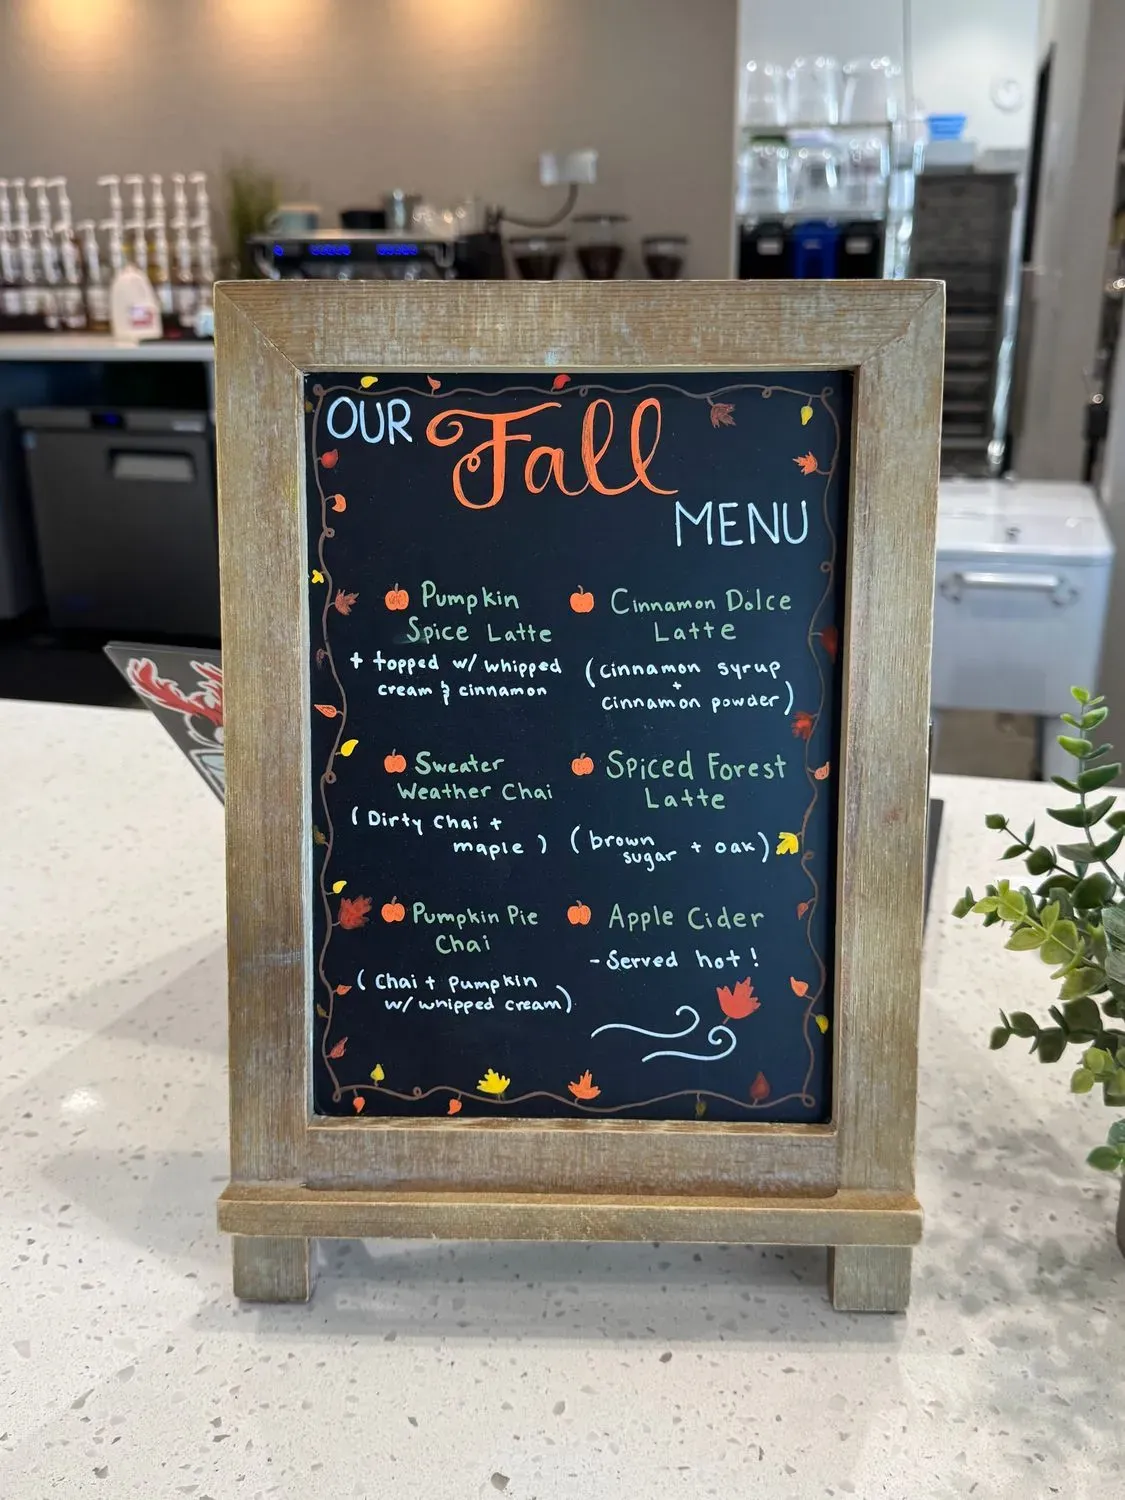 OUR Fall
MENU
Pumpkin
Spice Latte
+ topped w/ whipped
cream & cinnamon
Cinnamon Dolce
Latte
(cinnamon syrup
+
cinnamon powder)
Sweater
Weather Chai
(Dirty Chai +
maple)
Spiced Forest
Latte
(brown
sugar + oak)
Pumpkin Pie
Chai
(Chai + pumpkin
w/ whipped cream)
Apple Cider
- Served hot!